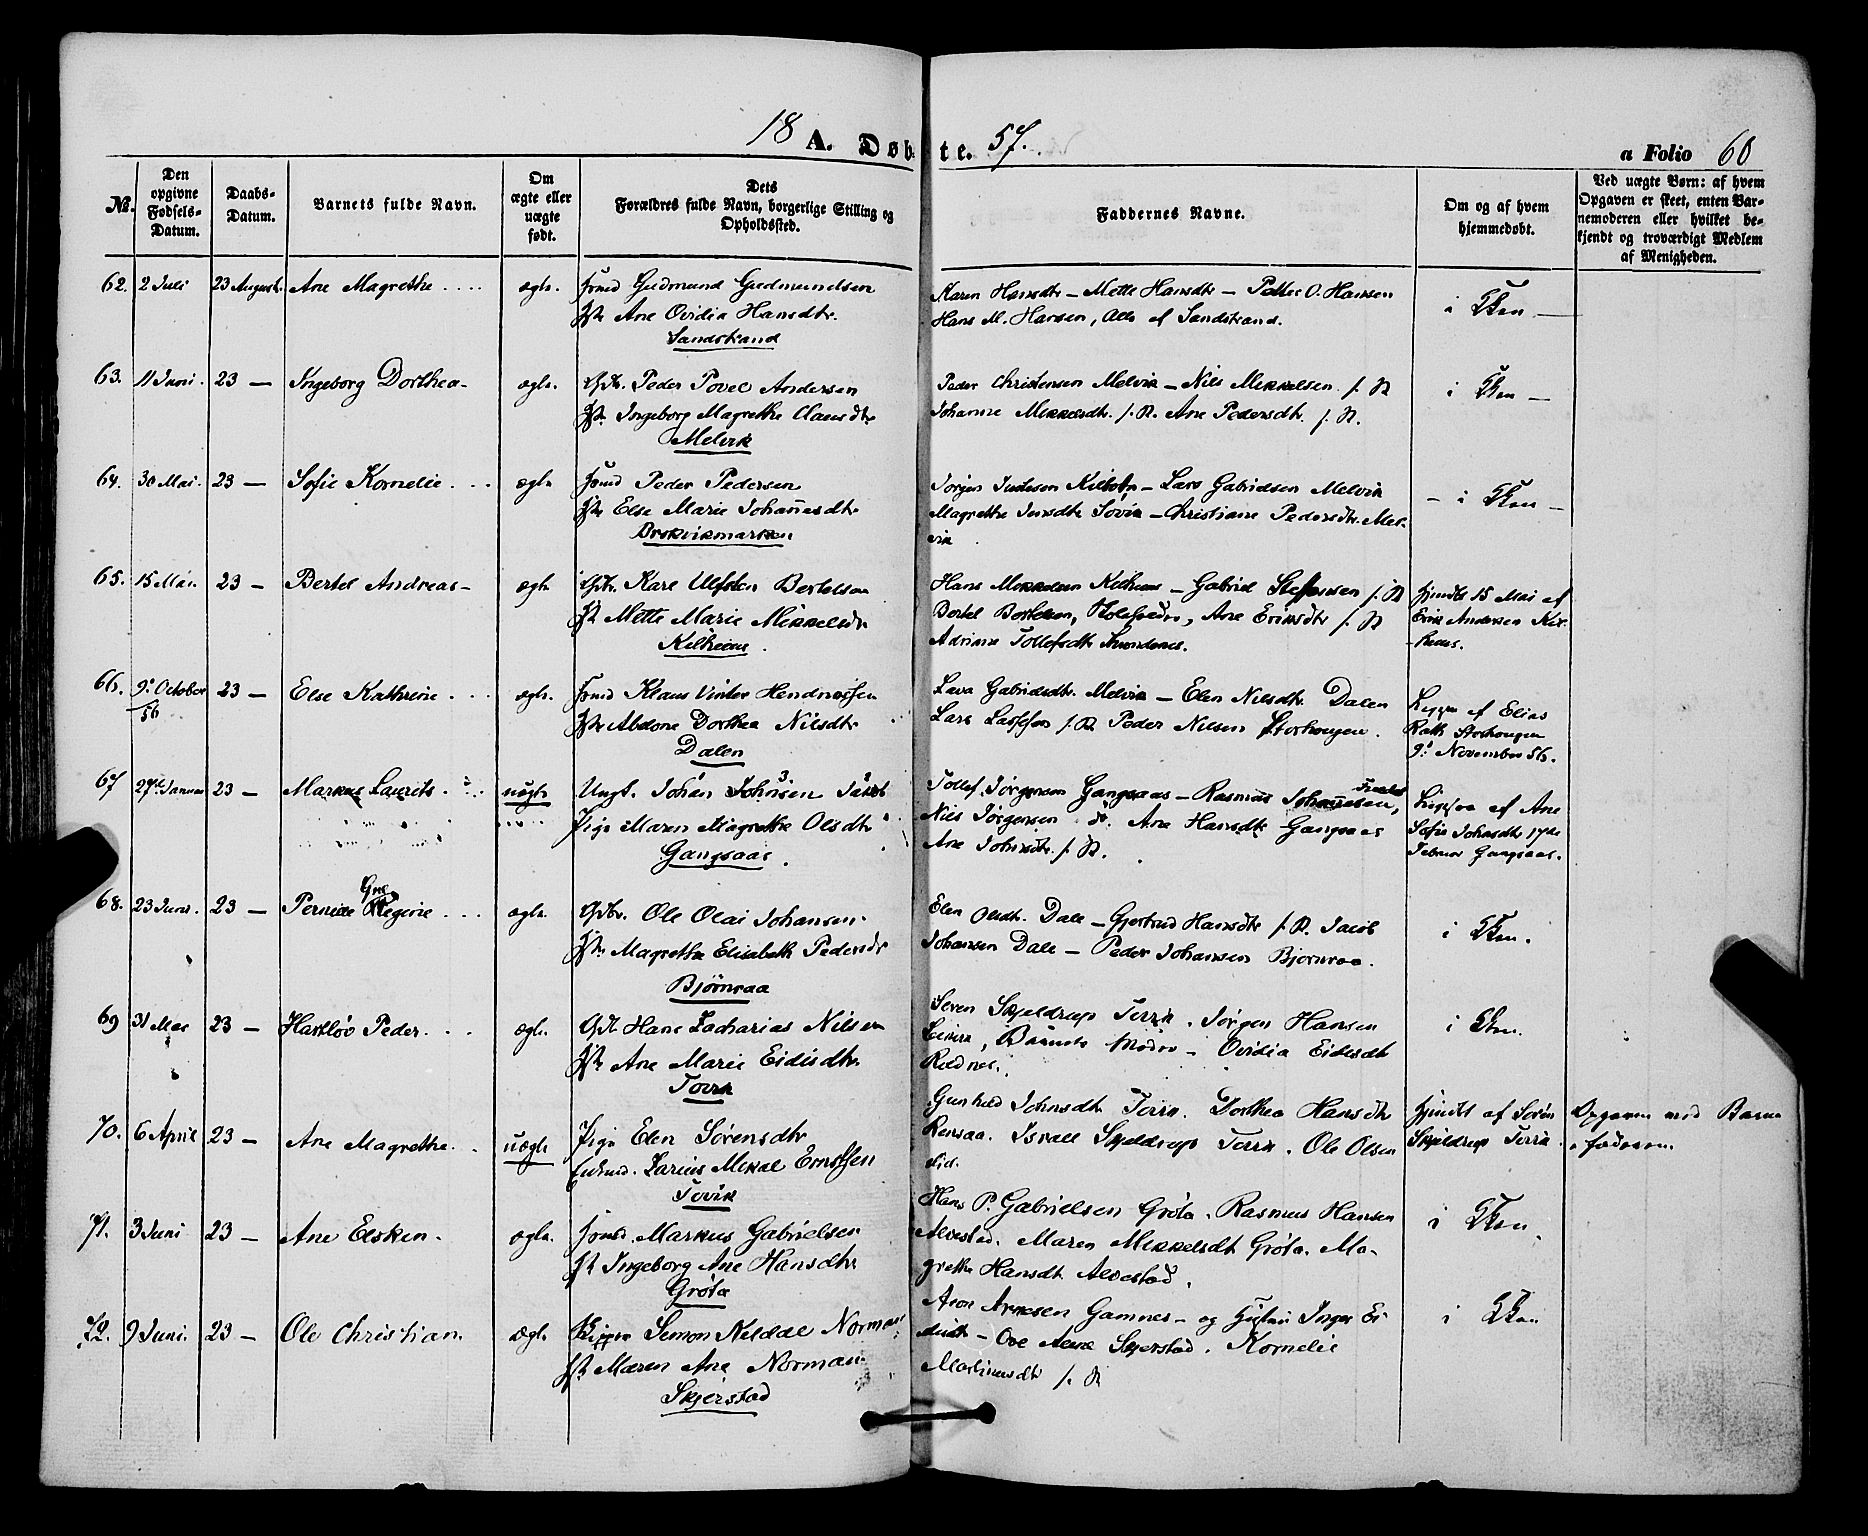 18 A. Døbte. 57.
a Folio 60
No.
Den opgivne Fødsels-Datum.
Daabs-Datum.
Barnets fulde Navn.
Om ægte eller uægte født.
Dets Forældres fulde Navn, borgerlige Stilling og Opholdssted.
Faddernes Navne.
Om og af hvem hjemmedøbt.
Ved uægte Børn: af hvem Opgaven er skeet, enten Barnemoderen eller hvilket bekjendt og troværdigt Medlem af Menigheden.
62. 2 Juli 23 August. Ane Magrethe ægte. Gudmund Gudmundsen
Ane Ovidia Hansdtr.
Sandstrand
Karen Hansdtr – Mette Hansdtr – Petter O. Hansen
Hans M. Hansen, Alle af Sandstrand.
i Kken
63. 11 Juni. 23 — Ingeborg Dorthea ægte. Peder Povel Andersen
Ingeborg Magrethe Clausdtr
Melvik
Peder Christensen Melvik – Nils Mikkelsen
Johanne Mikkelsdtr. Ane Pedersdtr.
i Kken
64. 30 Mai. 23 — Sofie Kornelie ægte Peder Pedersen
Else Marie Johannesdtr
Brokvikmarken
Jørgen – Lars Gabrielsen Melvik
Magrethe Søvik – Christiane Pedersdtr. Mel-
vik
– i Kken
65. 15 Mai. 23 — Bertel Andreas ægte Karl Ulfsten Bertelsen
Mette Marie Mikkelsdr
Kilhus
Hans Mikkelsen Kilhus – Gabriel Steffensen
Bertel Bertelsen, Ane Eriksdtr
Adriane Tollefsdtr
Hjemdt 15 Mai af
Erik Andersen Kil-
hus.
66. 9. October 56 23 — Else Kathrine ægte. Klaus Vinter Hendriksen
Abelone Dorthea Nilsdtr
Dalen
Lava Gabrielsdtr. Melvik – Elen Nilsdtr. Dalen
Lars Larssen Peder Nilsen Storhaugen.
af Elias
Storhaugen
9. November 56.
67 27de Januar 23 — Markus Laurits uægte Ungk. Johan Johnsen
Pige Maren Magrethe Olsdtr
Gangsaas.
Tollef Jørgensen Gangsaas – Rasmus Johannesen,
Nils Jørgensen Ane Hansdtr Gangsaas
Ane Johnsdtr.
af Ane
Sofie Johnsdtr 17de
Februar Gangsaas.
68. 23 Juni. 23 — Pernille Regine ægte. Ole Olai Johansen
Magrethe Elisabeth Pedersdr
Bjørnraa
Elen Olsdtr. Dale – Gjertrud Hansdtr Jacob
Johansen Dale – Peder Johansen Bjørnraa.
i Kken.
69 31 Mai 23 — Hartløv Peder ægte. Hans Zacharias Nilsen
Ane Marie Eidisdtr
Tovik
Søren Skjeldrup Torvik. Jørgen Hansen
Barnets Moder – Ovidia Eidisdt
i Kken.
70. 6 April 23 — Ane Magrethe uægte Pige Elen Sørensdtr
Zarius Mikal Ernstsen
Tovik
Gunhild Johnsdtr Dorthea Hansdtr
Rensaa. Israel Skjeldrup Ole Olsen
Hjemdt af Søren
Skjeldrup
Opgaven ved Barne
faderen.
71. 3 Juni 23 — Ane Elsken ægte. Markus Gabrielsen
Ingeborg Ane Hansdtr
Grøta
Hans P. Gabrielsen Grøta. Rasmus Hansen
Alvestad. Maren Mikkelsdt Grøta. Ma-
grethe Hansdt Alvestad.
i Kken
72. 9 Juni. 23 — Ole Christian. ægte. Simon Norman
Maren Ane Norman
Skjerstad
Aron Arnesen Gamnes – og Hustru Inger
– Ove Skjerstad. Kornelie
Martinusdtr
i Kken